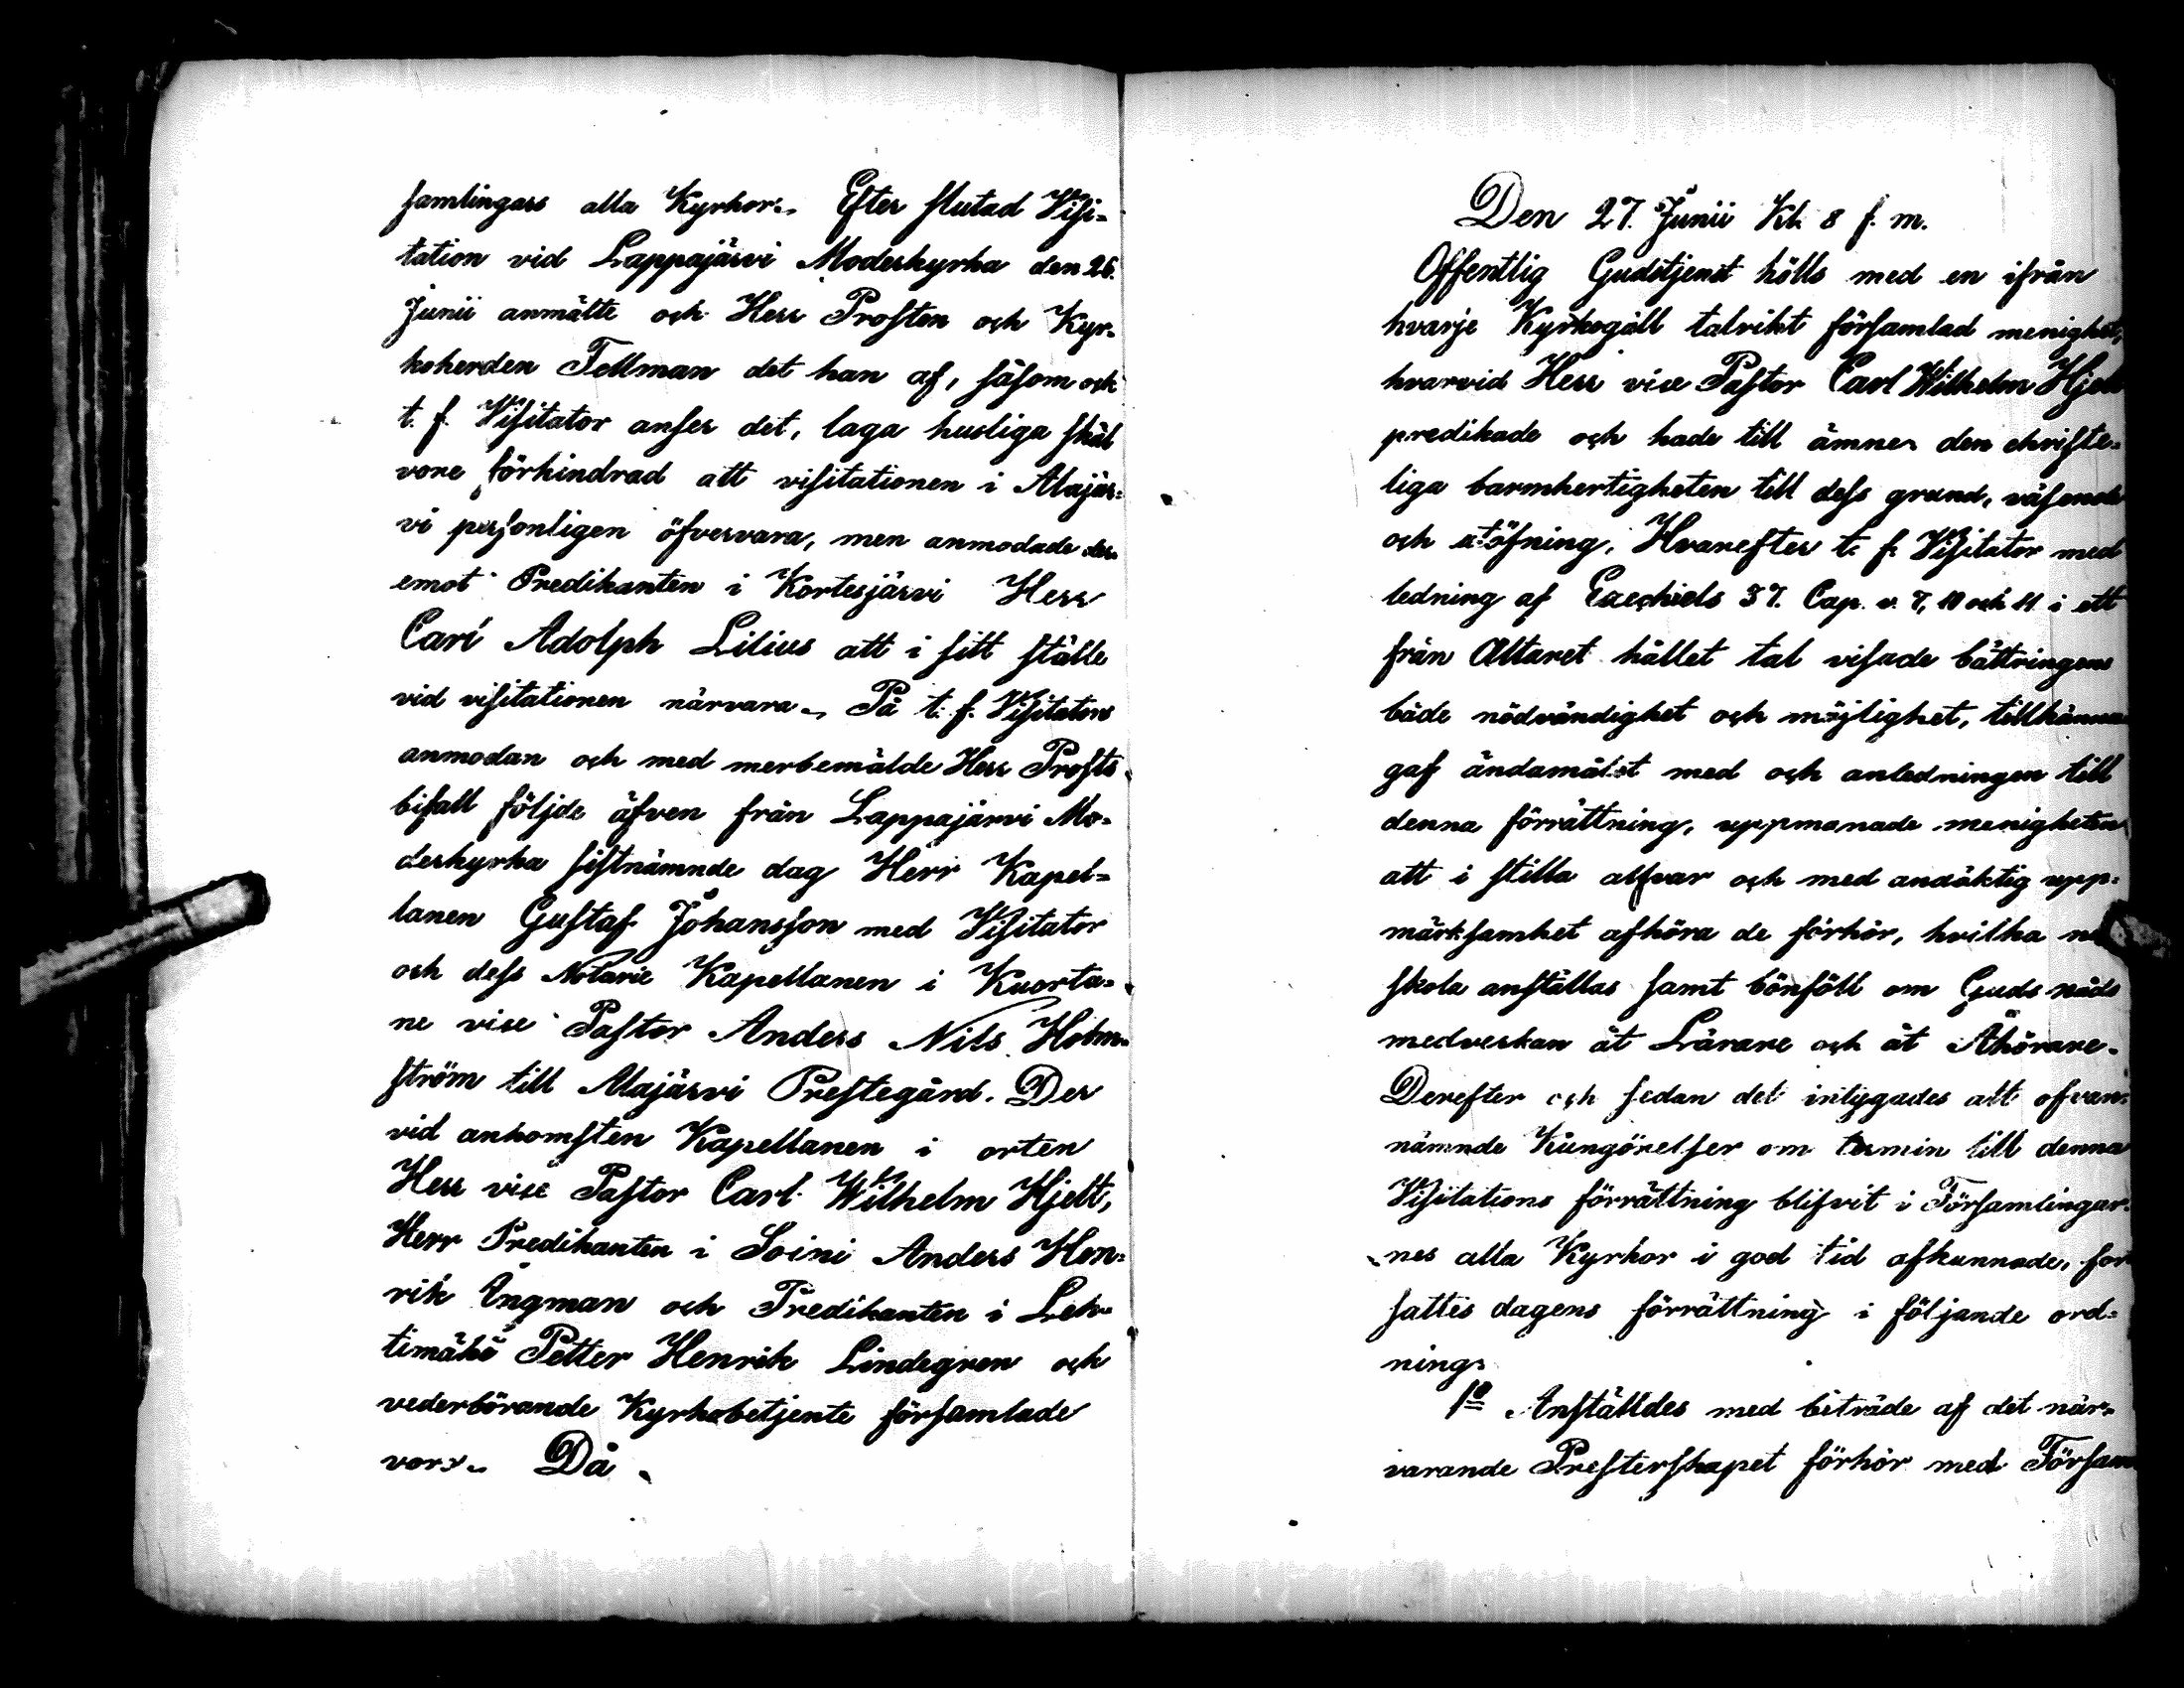 samlingars alla Kyrkor. Efter slutad Visi-
tation vid Lappajärvi Moderkyrka den 26.
Junii anmälte och Herr Prosten och Kyr-
koherden Tellman det han af, såsom och
t. f. Visitator anser det, laga husliga skäl
vore förhindrad att visitationen i Alajär-
vi personligen öfvervara, men anmodade der-
emot Predikanten i Kortesjärvi Herr
Carl Adolph Lilius att i sitt ställe
vid visitationen närvara. På t. f. Visitators
anmodan och med merbemälde Herr Prosts
bifall följde äfven från Lappajärvi Mo-
derkyrka sistnämnde dag Herr Kapel-
lanen Gustaf Johansson med Visitator
och dess Notarie Kapellanen i Kuorta-
ne vice Pastor Anders Nils Holm-
ström till Alajärvi Prestegård. Der
vid ankomsten Kapellanen i orten
Herr vice Pastor Carl Wilhelm Hjelt,
Herr Predikanten i Soini Anders Hen-
rik Engman och Predikanten i Leh-
timäki Petter Henrik Lindegren och
vederbörande Kyrkobetjente församlade
voro. Då
Den 27. Junii Kl. 8 f. m.
Offentlig Gudstjenst hölls med en ifrån
hvarje Kyrkogäll talrikt församlad menighet,
hvarvid Herr vice Pastor Carl Wilhelm Hjelt
predikade och hade till ämne den christe-
liga barmhertigheten till dess grund, väsende
och utöfning. Hvarefter t. f. Visitator med
ledning af Ezechiels 37. Cap. v. 7, 10 och 11 i ett
från Altaret hållet tal visade bättringens
både nödvändighet och möjlighet, tillkänna
gaf ändamålet med och anledningen till
denna förrättning, uppmanade menigheten
att i stilla allvar och med andäktig upp-
märksamhet afhöra de förhör, hvilka nu
skola anställas samt bönföll om Guds nåds
medverkan åt Lärare och åt Åhörare.
Derefter och sedan det intygades att ofvan-
nämnde Kungörelser om termin till denna
Visitations förrättning blifvit i Församlingar-
nes alla Kyrkor i god tid afkunnade, fort
sattes dagens förrättning i följande ord-
ning:
1º Anställdes med biträde af det när-
varande Presterskapet förhör med Försam